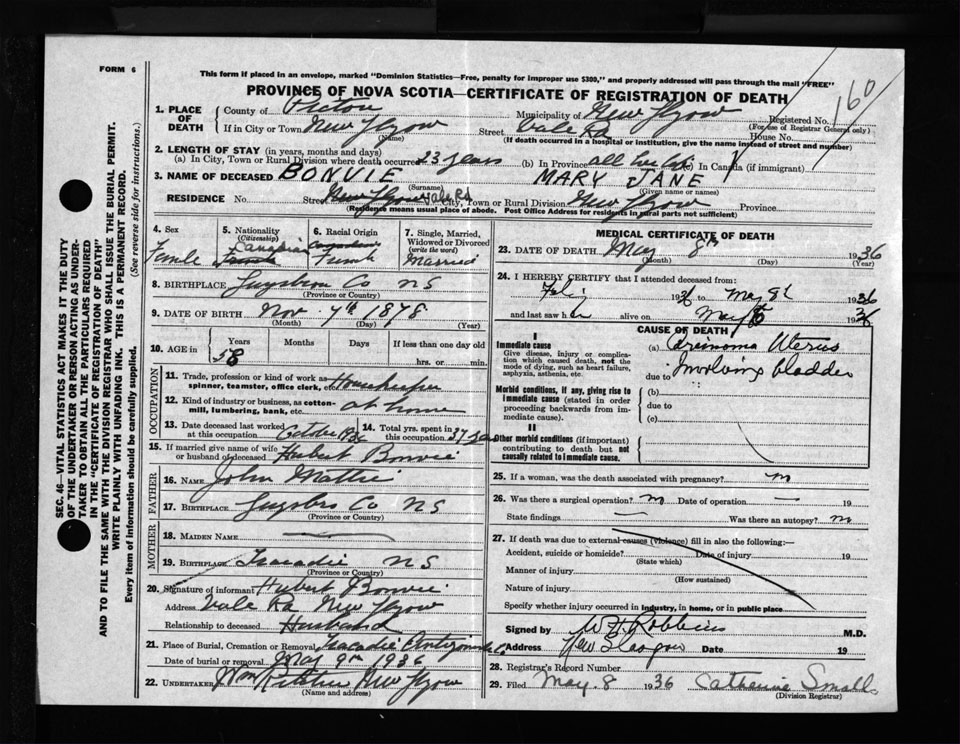 FORM 6
This form if placed in an envelope, marked "Dominion Statistics—Free, penalty for improper use $300," and properly addressed will pass through the mail "FREE"
PROVINCE OF NOVA SCOTIA—CERTIFICATE OF REGISTRATION OF DEATH
160
1. PLACE OF DEATH
County of Pictou
Municipality of New Glgow
Registered No.
(For use of Registrar General only)
If in City or Town New Glgow
(Name)
Street Vale Rd
House No.
(If death occurred in a hospital or institution, give the name instead of street and number)
2. LENGTH OF STAY (in years, months and days)
(a) In City, Town or Rural Division where death occurred 23 years (b) In Province all her life (c) In Canada (if immigrant)
3. NAME OF DECEASED BONVIE MARY JANE
(Surname) (Given name or names)
RESIDENCE No. Street New Glgow Vale Rd City, Town or Rural Division New Glgow Province
(Residence means usual place of abode. Post Office Address for residents in rural parts not sufficient)
4. Sex
Female
5. Nationality
(Citizenship)
Canadian
French
6. Racial Origin
French
7. Single, Married, Widowed or Divorced
(write the word)
Married
8. BIRTHPLACE Guysboro Co NS
(Province or Country)
9. DATE OF BIRTH Nov 7th 1878
(Month) (Day) (Year)
10. AGE in
Years Months Days If less than one day old
58
hrs. or min.
OCCUPATION
11. Trade, profession or kind of work as spinner, teamster, office clerk, etc. Housekeeper
12. Kind of industry or business, as cotton-mill, lumbering, bank, etc. at home
13. Date deceased last worked at this occupation October 1936
14. Total yrs. spent in this occupation 37 years
15. If married give name of wife or husband of deceased Hubert Bonvie
FATHER
16. NAME John Mattie
17. BIRTHPLACE Guysboro Co NS
(Province or Country)
MOTHER
18. MAIDEN NAME
19. BIRTHPLACE Tracadie NS
(Province or Country)
20. Signature of informant Hubert Bonvie
Address Vale Rd New Glgow
Relationship to deceased Husband
21. Place of Burial, Cremation or Removal Tracadie Antigonish Co
Date of burial or removal May 9th 1936
22. UNDERTAKER New Glgow
(Name and address)
MEDICAL CERTIFICATE OF DEATH
23. DATE OF DEATH May 8th 1936
(Month) (Day) (Year)
24. I HEREBY CERTIFY that I attended deceased from:
1936 to May 8th 1936
and last saw her alive on May 8 1936
CAUSE OF DEATH
I
Immediate cause
Give disease, injury or complication which caused death, not the mode of dying, such as heart failure, asphyxia, asthenia, etc.
(a) Carcinoma Uterus
due to Involving bladder
Morbid conditions, if any, giving rise to immediate cause (stated in order proceeding backwards from immediate cause).
(b)
due to
(c)
II
Other morbid conditions (if important) contributing to death but not causally related to immediate cause.
25. If a woman, was the death associated with pregnancy? no
26. Was there a surgical operation? no Date of operation — 19
State findings — Was there an autopsy? no
27. If death was due to external causes (violence) fill in also the following:—
Accident, suicide or homicide? Date of injury 19
(State which)
Manner of injury
(How sustained)
Nature of injury
Specify whether injury occurred in industry, in home, or in public place
Signed by W H Robbins M.D.
Address New Glasgow Date 19
28. Registrar's Record Number
29. Filed May. 8 1936 Catherine Small
(Division Registrar)
SEC. 46—VITAL STATISTICS ACT MAKES IT THE DUTY
OF THE UNDERTAKER OR PERSON ACTING AS UNDER-
TAKER TO OBTAIN ALL THE PARTICULARS REQUIRED
IN THE "CERTIFICATE OF REGISTRATION OF DEATH"
AND TO FILE THE SAME WITH THE DIVISION REGISTRAR WHO SHALL ISSUE THE BURIAL PERMIT.
WRITE PLAINLY WITH UNFADING INK. THIS IS A PERMANENT RECORD.
Every item of information should be carefully supplied.
(See reverse side for instructions.)